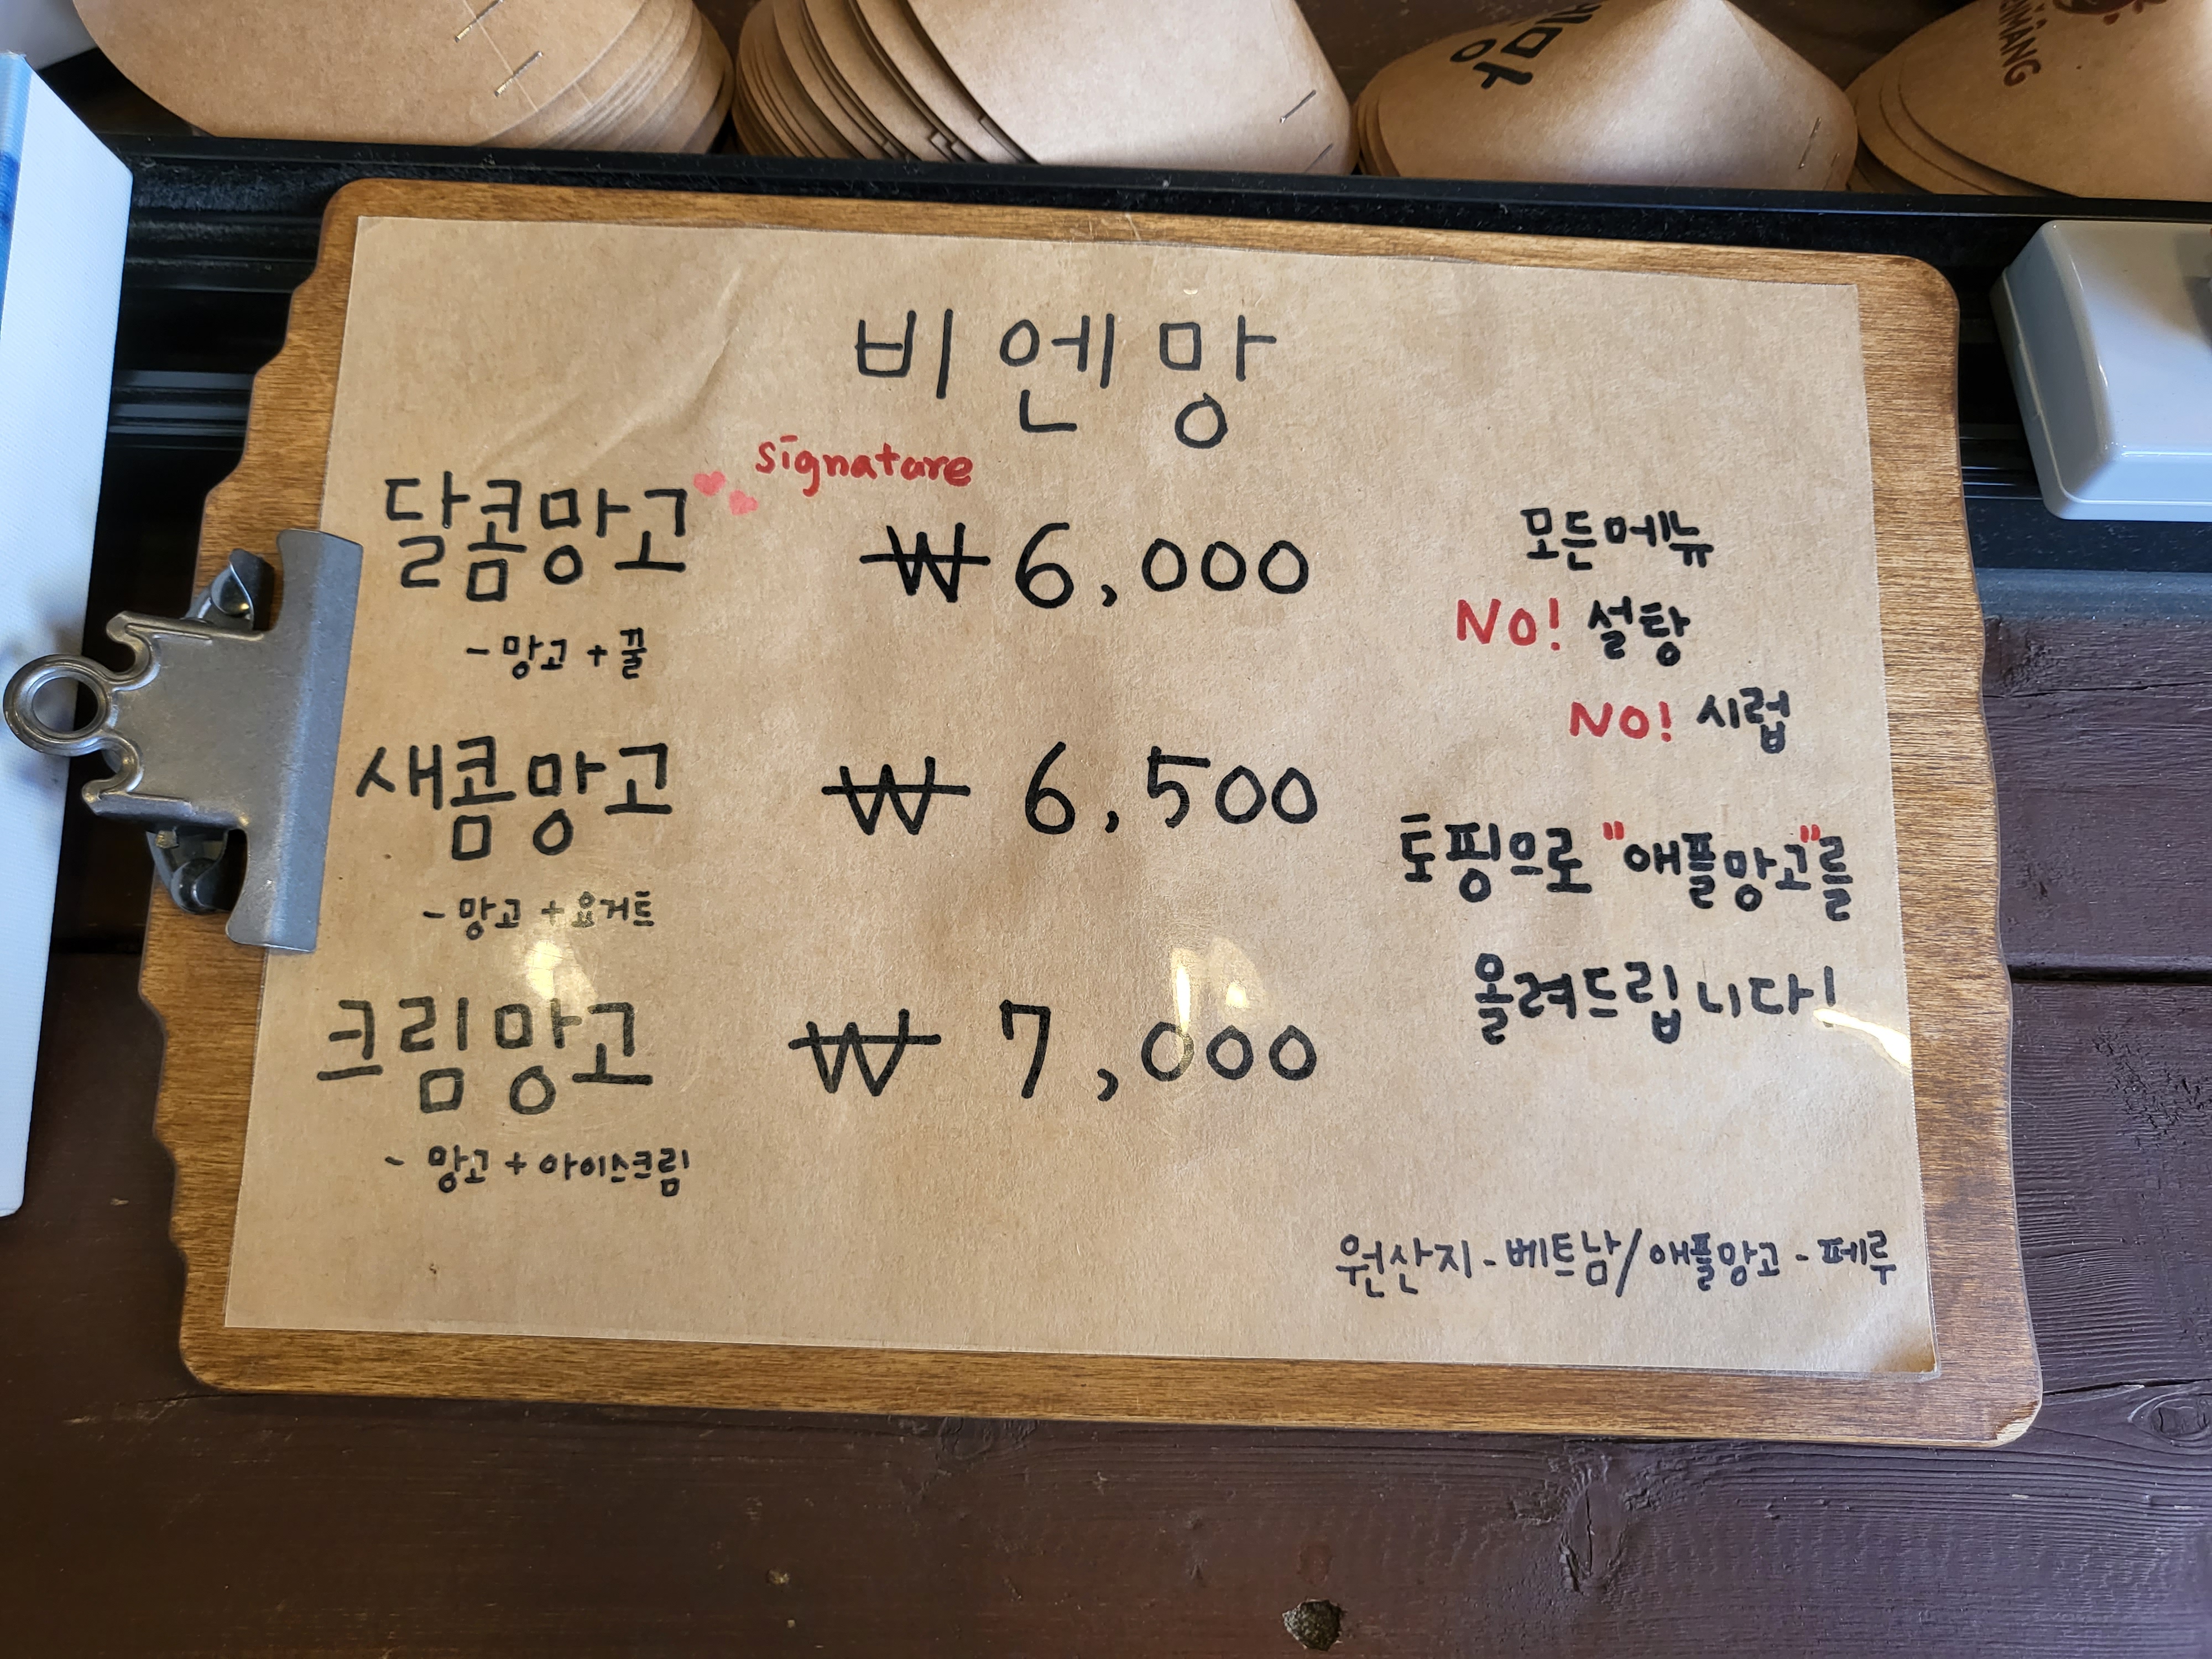 비엔망
signature
달콤망고 ₩6,000
- 망고 + 꿀
새콤망고 ₩ 6,500
- 망고 + 요거트
크림망고 ₩ 7,000
- 망고 + 아이스크림
모든메뉴
NO! 설탕
NO! 시럽
토핑으로 "애플망고"를
올려드립니다!
원산지 - 베트남/애플망고 - 페루